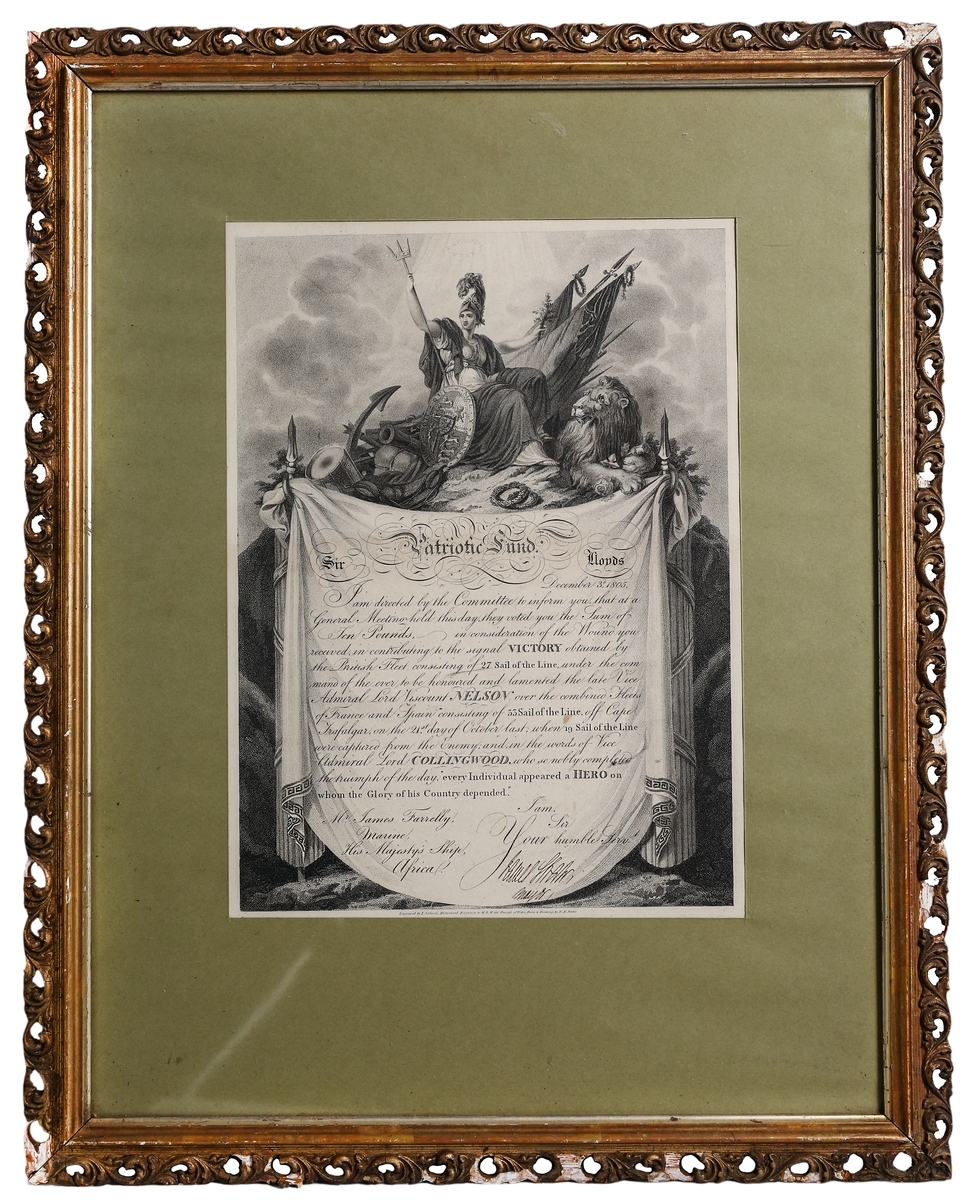 Patriotic Fund.
Sir Lloyds
December 3d. 1805.
I am directed by the Committee to inform you, that at a
General Meeting held this day, they voted you the Sum of
Ten Pounds, in consideration of the Wound you
received, in contributing to the signal VICTORY obtained by
the British Fleet consisting of 27 Sail of the Line, under the com
mand of the ever to be honoured and lamented the late Vice
Admiral Lord Viscount NELSON over the combined Fleets
of France and Spain consisting of 33 Sail of the Line, off Cape
Trafalgar, on the 21st day of October last; when 19 Sail of the Line
were captured from the Enemy; and, in the words of Vice
Admiral Lord COLLINGWOOD, who so nobly completed
the triumph of the day, "every Individual appeared a HERO on
whom the Glory of his Country depended."
I am,
Mr. James Farrelly, Sir,
Marine, Your humble Servt.
His Majesty's Ship,
Africa.